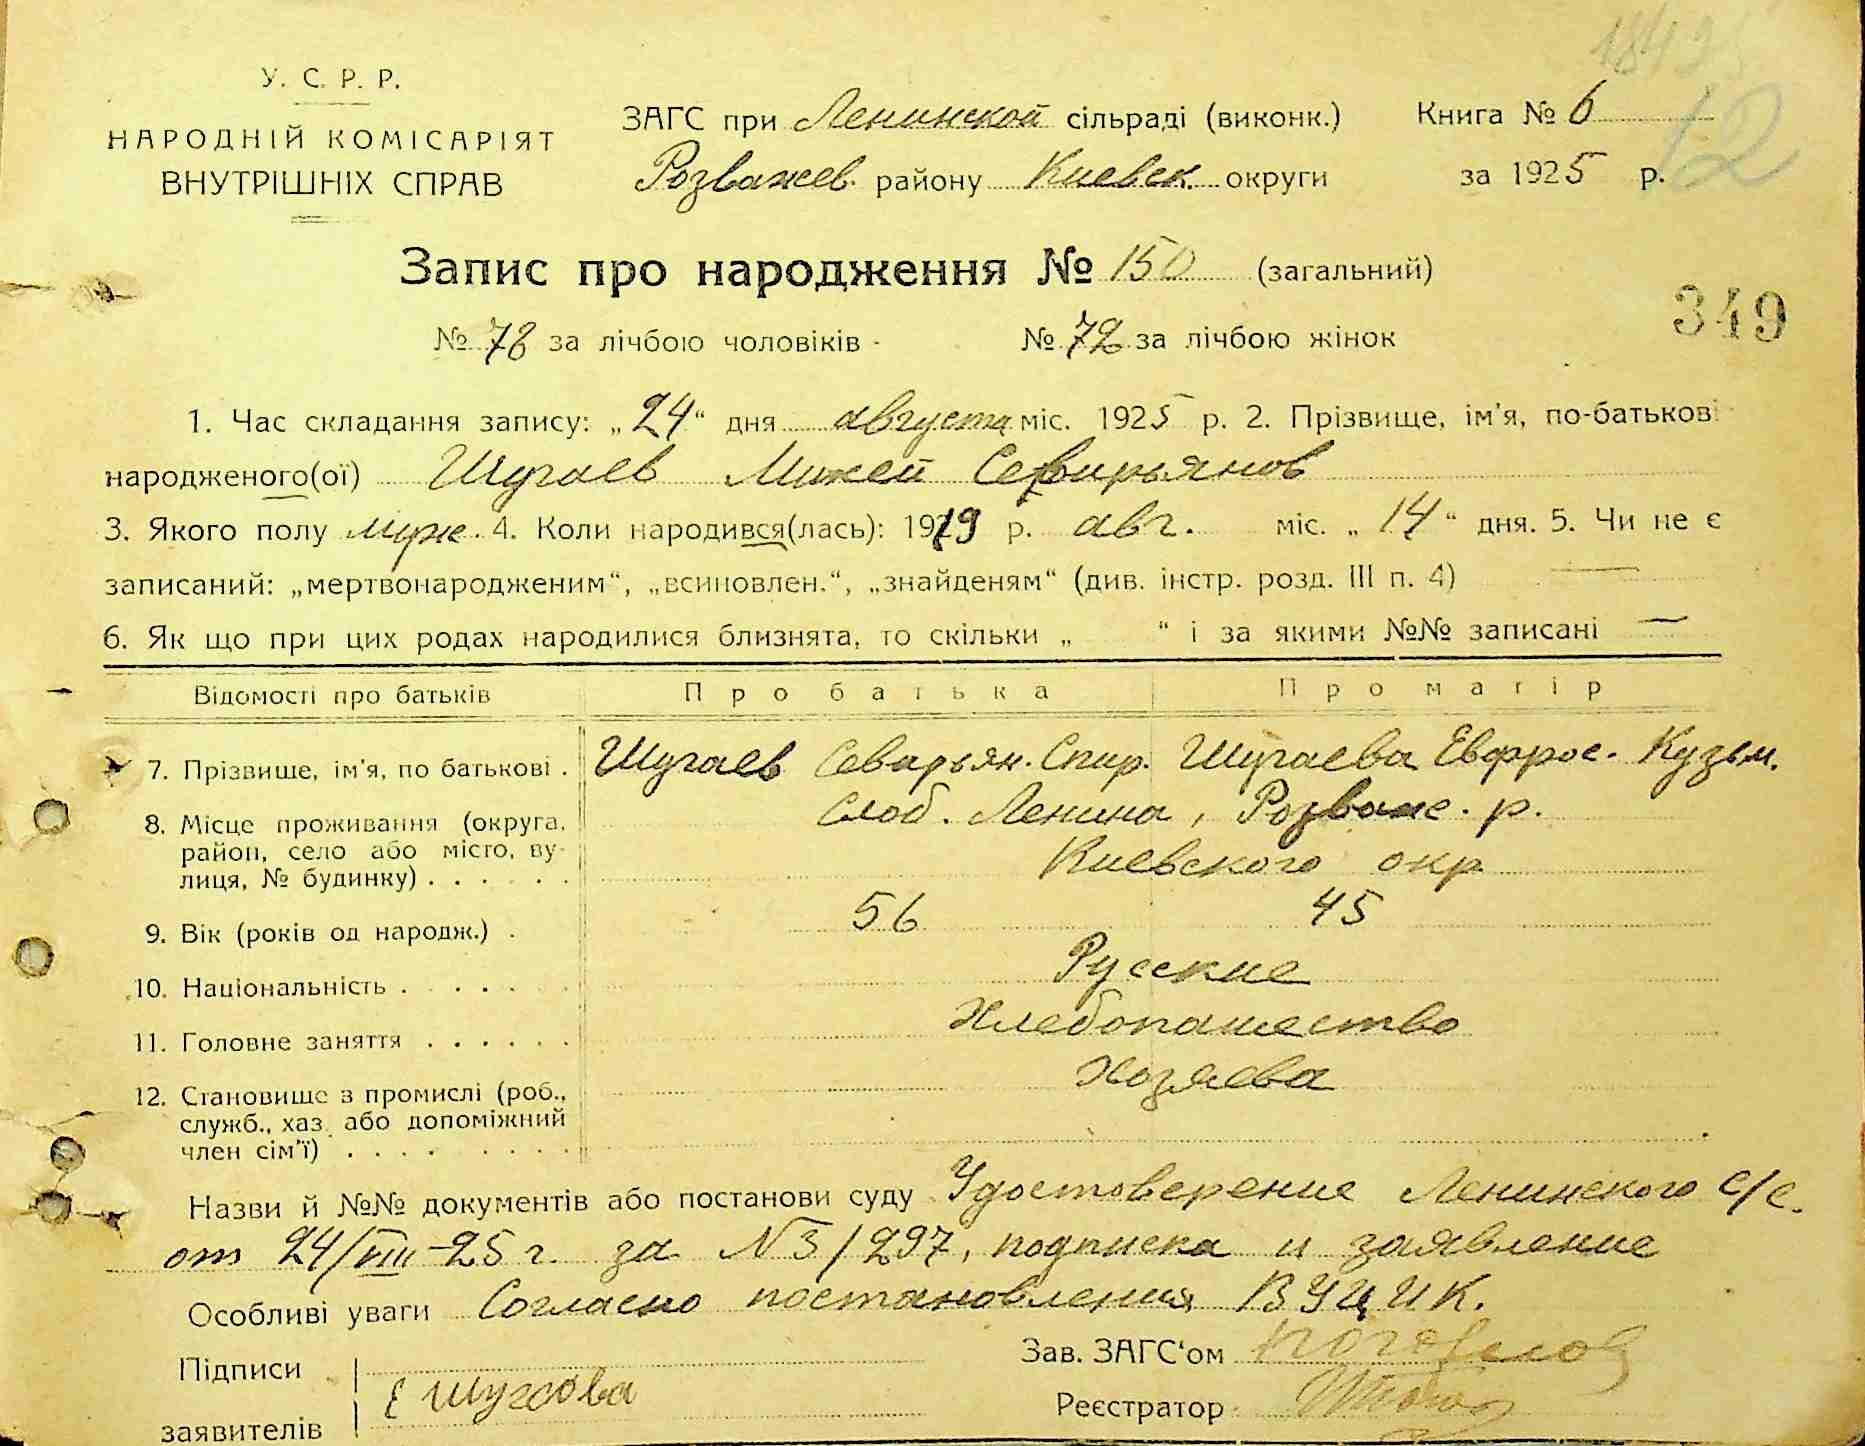 У. С. Р. Р.
НАРОДНІЙ КОМІСАРІЯТ
ВНУТРІШНІХ СПРАВ
ЗАГС при Ленинской сільраді (виконк.)
Розважев. району Киевск. округи
Книга № 6
за 1925 р.
12
Запис про народження № 150 (загальний)
349
№ 78 за лічбою чоловіків - № 72 за лічбою жінок
1. Час складання запису: „24“ дня августа міс. 1925 р. 2. Прізвище, ім'я, по-батькові
народженого(ої) Шугаев Мокей Севирьянов
3. Якого полу муж. 4. Коли народився(лась): 1919 р. авг. міс. „14“ дня. 5. Чи не є
записаний: „мертвонародженим“, „всиновлен.“, „знайденям“ (див. інстр. розд. III п. 4) —
6. Як що при цих родах народилися близнята, то скільки „ “ і за якими №№ записані —
Відомості про батьків Про батька Про матір
7. Прізвище, ім'я, по батькові . Шугаев Северьян. Спир. Шугаева Евфрос. Кузьм.
8. Місце проживання (округа, Слоб. Ленина, Розваж. р.
район, село або місто, ву-
лиця, № будинку) . . . . . . Киевского окр
9. Вік (років од народж.) . 56 45
10. Національність . . . . . . Русские
11. Головне заняття . . . . . . Хлебопашество
12. Становище з промислі (роб., Хозяева
служб., хаз. або допоміжний
член сім'ї) . . . . . . . . .
Назви й №№ документів або постанови суду Удостоверение Ленинского с/с.
от 24/VIII-25 г. за N 3/297, подписка и заявление
Особливі уваги Согласно постановления ВУЦИК.
Підписи
заявителів
Е Шугаева
Зав. ЗАГС'ом
Реєстратор